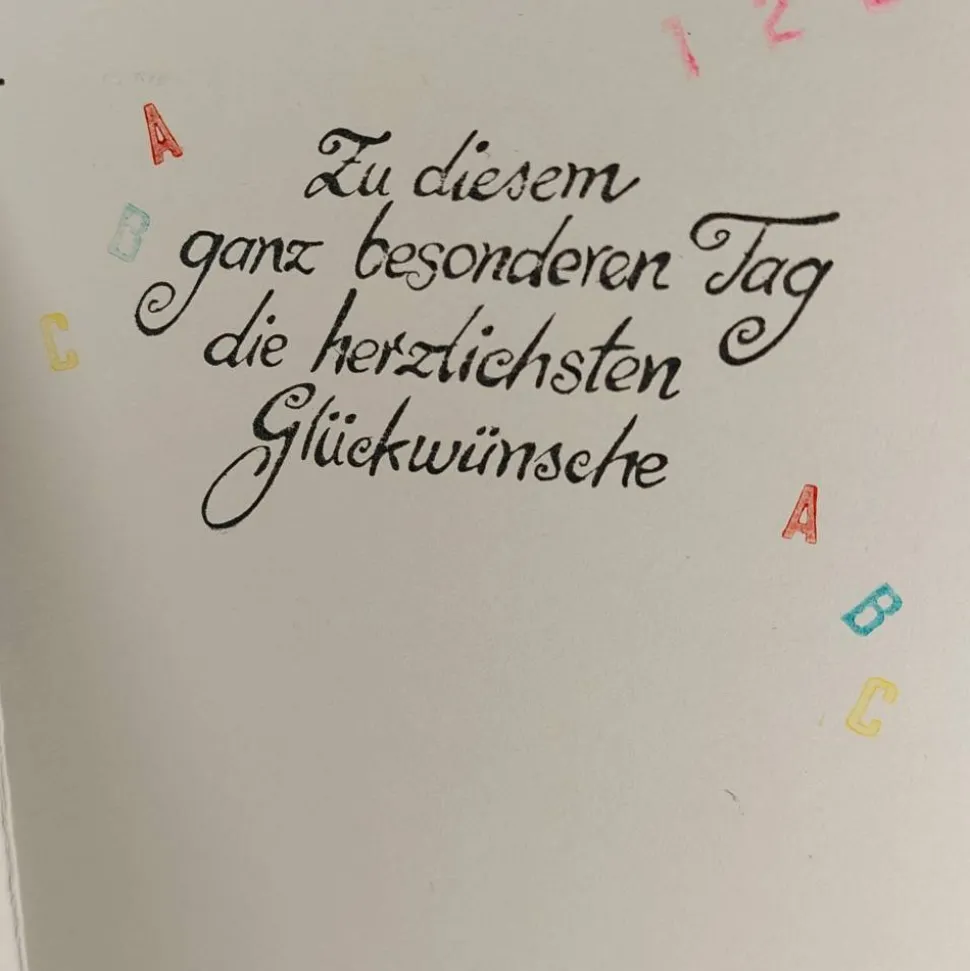 1 2
A
Zu diesem
B
ganz besonderen Tag
C
die herzlichsten
Glückwünsche
A
B
C